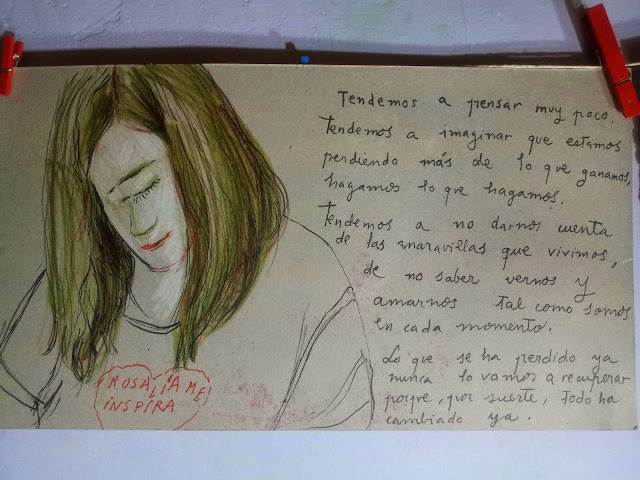 Tendemos a pensar muy poco.
Tendemos a imaginar que estamos
perdiendo más de lo que ganamos,
hagamos lo que hagamos.
Tendemos a no darnos cuenta
de las maravillas que vivimos,
de no saber vernos y
amarnos tal como somos
en cada momento.
Lo que se ha perdido ya
nunca lo vamos a recuperar
porque, por suerte, todo ha
cambiado ya.
ROSALÍA ME
INSPIRA